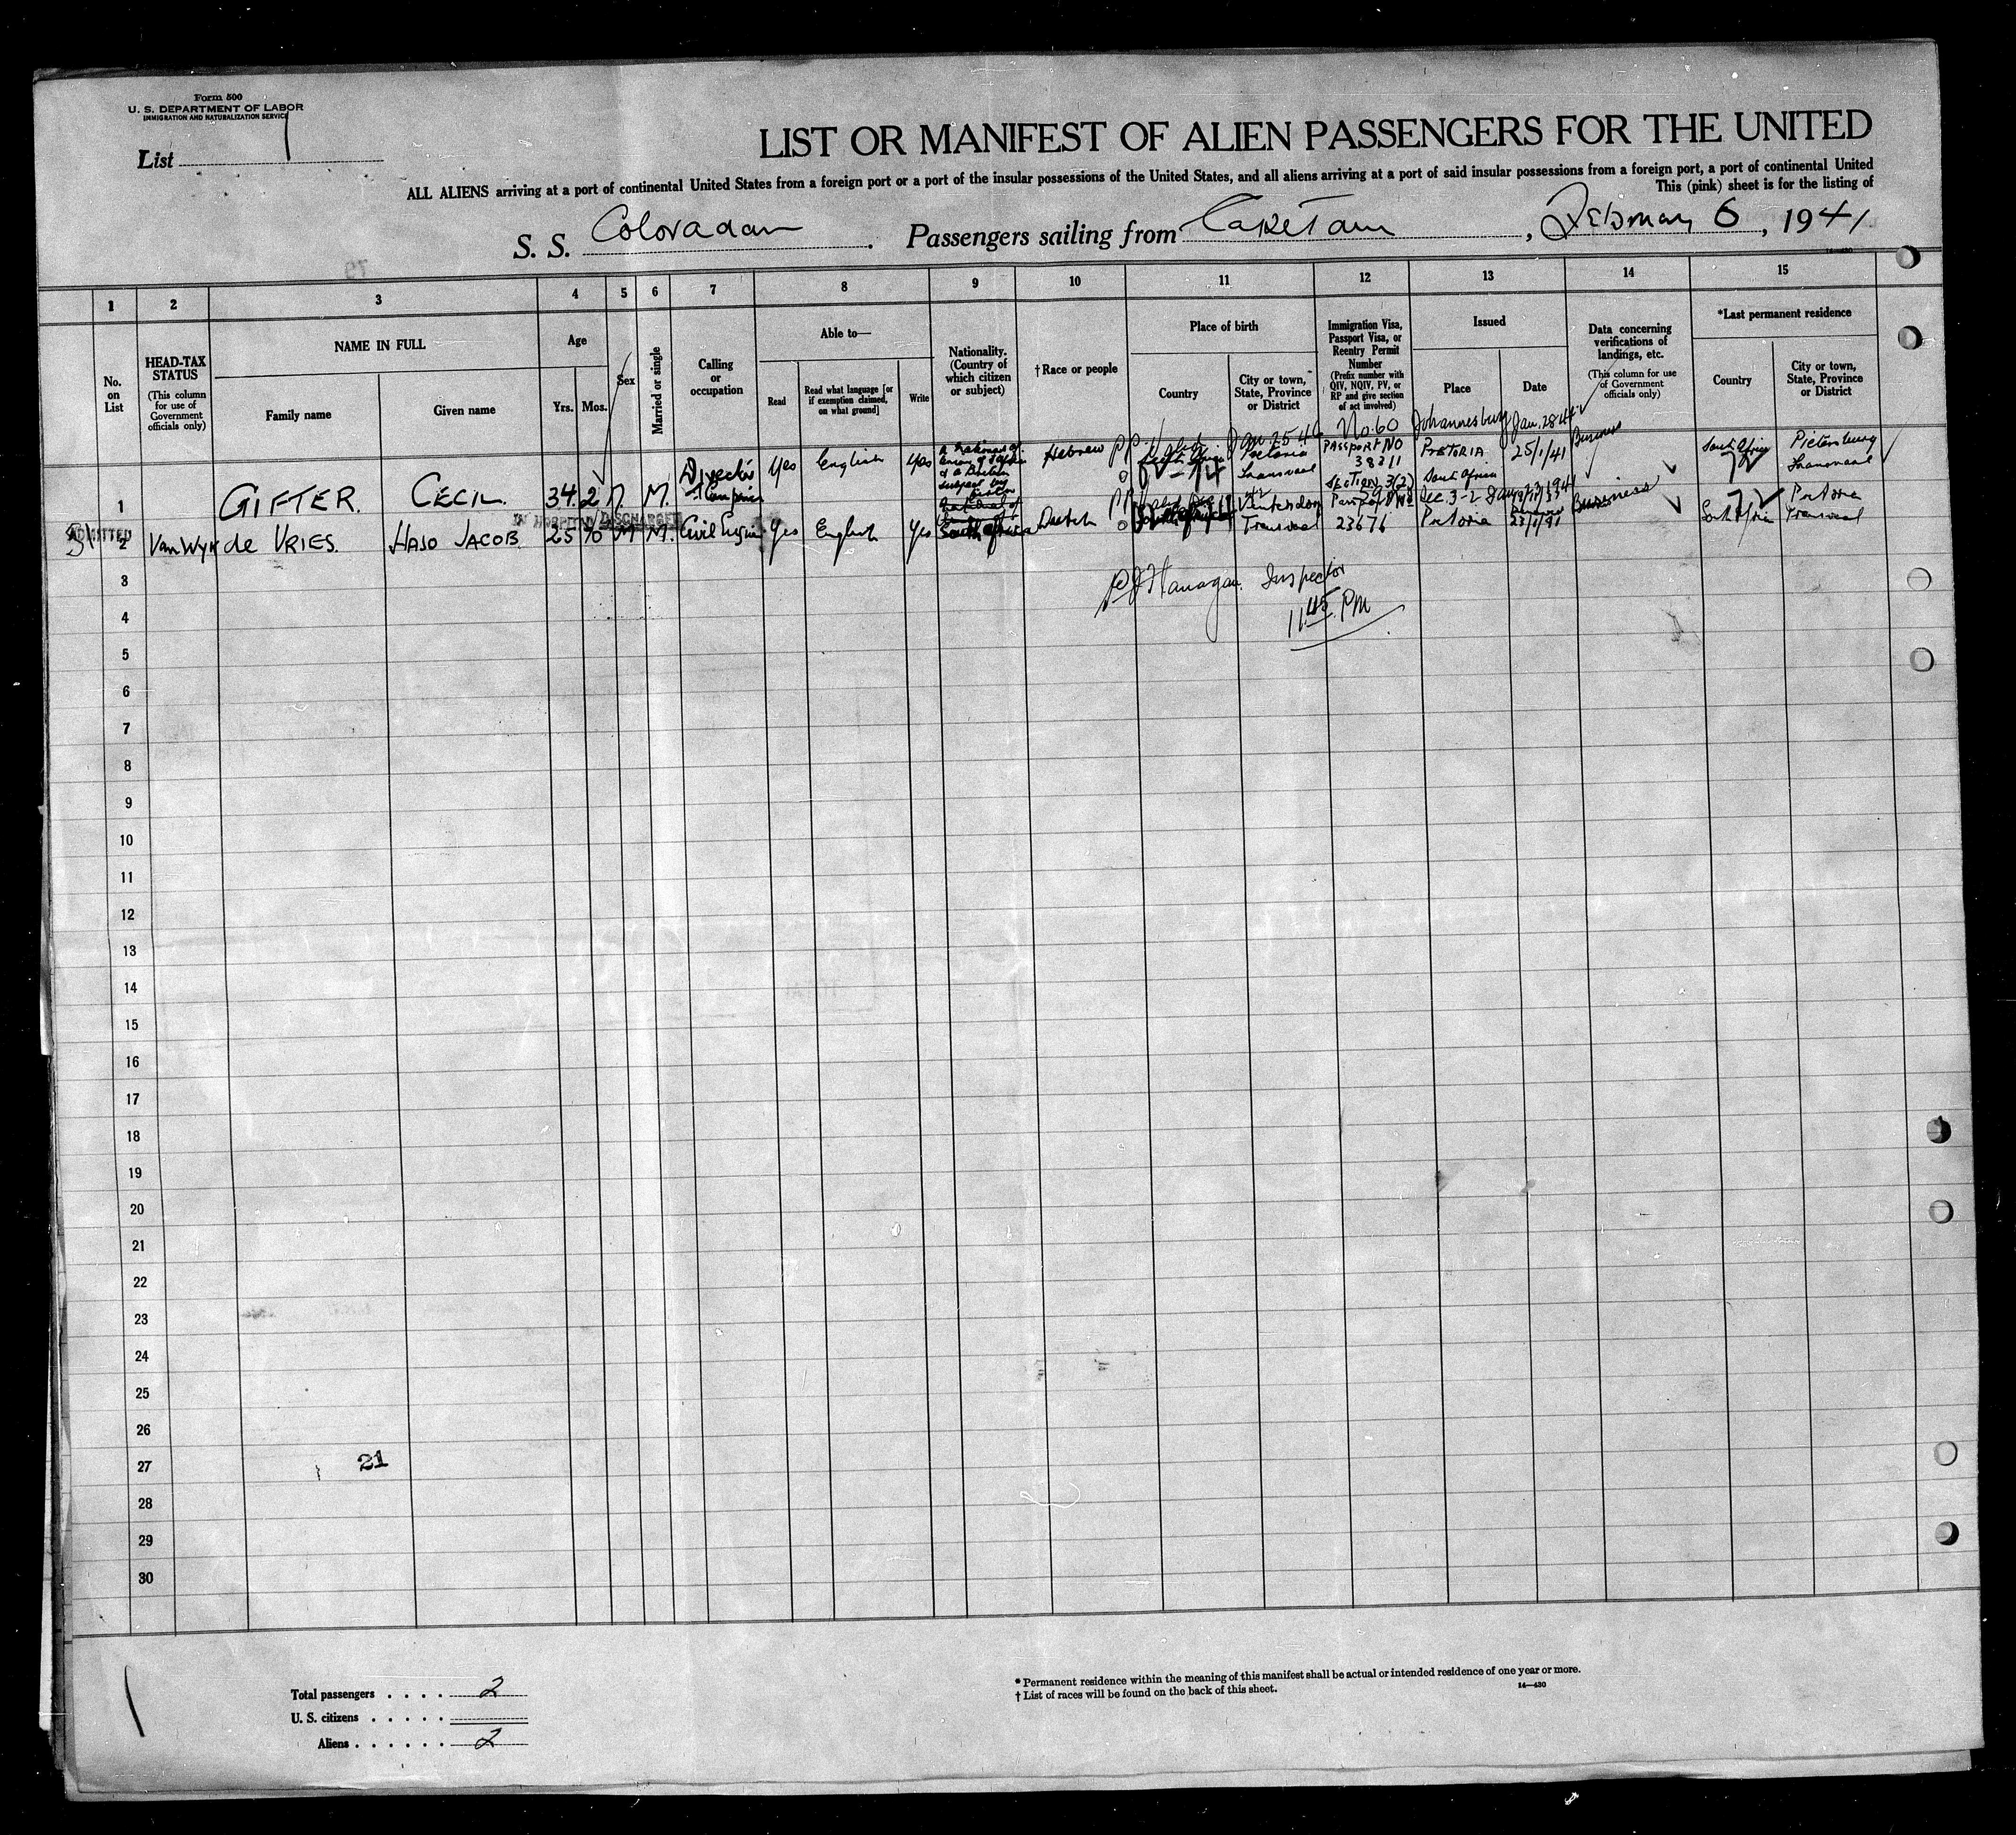 Form 500
U. S. DEPARTMENT OF LABOR
IMMIGRATION AND NATURALIZATION SERVICE
List 1
LIST OR MANIFEST OF ALIEN PASSENGERS FOR THE UNITED
ALL ALIENS arriving at a port of continental United States from a foreign port or a port of the insular possessions of the United States, and all aliens arriving at a port of said insular possessions from a foreign port, a port of continental United
This (pink) sheet is for the listing of
S. S. Coloradan. Passengers sailing from Capetown, February 6, 1941
14—430
1 2 3 4 5 6 7 8 9 10 11 12 13 14 15
No. on List
HEAD-TAX STATUS
(This column for use of Government officials only)
NAME IN FULL
Family name
Given name
Age
Yrs. Mos.
Sex
Married or single
Calling or occupation
Able to—
Read
Read what language [or if exemption claimed, on what ground]
Write
Nationality. (Country of which citizen or subject)
† Race or people
Place of birth
Country
City or town, State, Province or District
Immigration Visa, Passport Visa, or Reentry Permit Number
(Prefix number with QIV, NQIV, PV, or RP and give section of act involved)
Issued
Place
Date
Data concerning verifications of landings, etc.
(This column for use of Government officials only)
*Last permanent residence
Country
City or town, State, Province or District
No. 60 Johannesburg Jan. 28 41
1 GIFTER. CECIL. 34 2 M. M. Director Companies Yes English Yes Hebrew Pretoria Transvaal PASSPORT NO 38311 SECTION 3(2) PRETORIA South Africa 25/1/41 Business South Africa Pietersburg Transvaal
ADMITTED
IN HOSPITAL DISCHARGED
2 Van Wyk de VRIES. HASO JACOB. 25 10 M M. Civil Engin Yes English Yes South Africa Dutch Ventersdorp Transvaal Passport No 23676 Pretoria 23/1/41 Business South Africa Pretoria Transvaal
3
P J Flanagan. Inspector
11.45 PM
4
5
6
7
8
9
10
11
12
13
14
15
16
17
18
19
20
21
22
23
24
25
26
27
21
28
29
30
Total passengers . . . . 2
U. S. citizens . . . . .
Aliens . . . . . . 2
* Permanent residence within the meaning of this manifest shall be actual or intended residence of one year or more.
† List of races will be found on the back of this sheet.
14—430